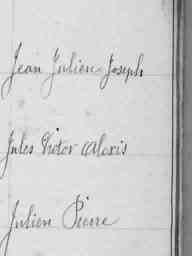 Jean Julien Joseph
Jules Victor Alexis
Julien Pierre